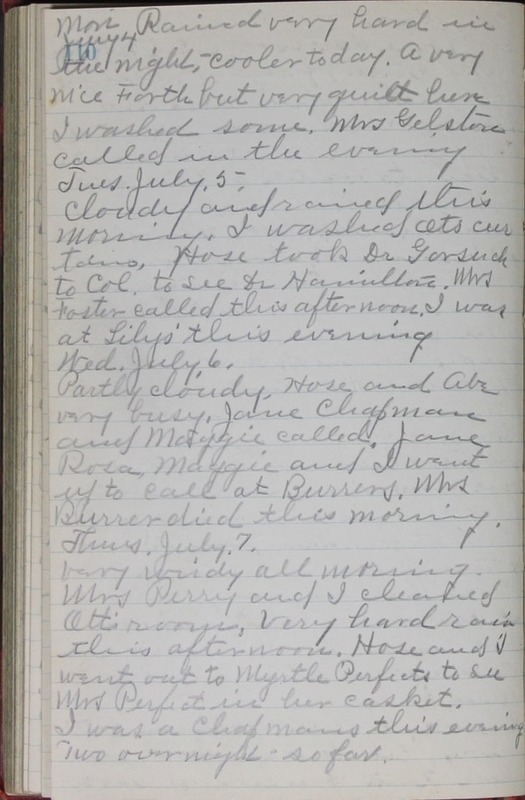 Mon Rained very hard in
July 4
110
the night, - cooler today. A very
nice Forth but very quiett here
I washed some. Mrs Gelston
called in the evening
Tues. July. 5-
Cloudy and rained this
morning. I washed cur
tans, Hose took Dr Gorsuch
to Col. to see Dr Hamillton. Mrs
Foster called this afternoon, I was
at Lilys' this evening
Wed. July 6.
Partly cloudy, Hose and Abe
very busy, Jane Chapman
and Maggie called. Jane
Rosa, Maggie and I went
up to call at Burrers. Mrs
Burrer died this morning.
Thurs. July. 7.
very windy all morning.
Mrs Perry and I cleaned
room, Very hard rain
this afternoon. Hose and I
went out to Myrtle Perfects to see
Mrs Perfect in her casket.
I was a Chapmans this evening
Two overnight - so far.